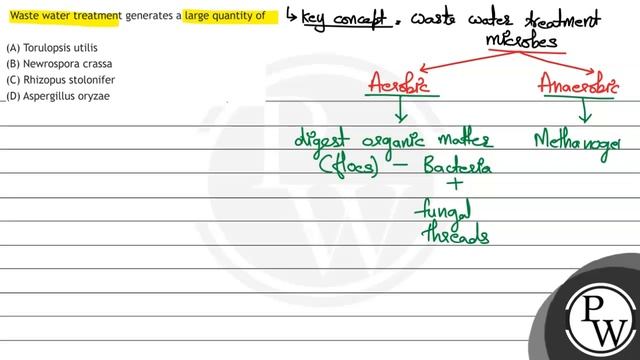 Waste water treatment generates a large quantity of
(A) Torulopsis utilis
(B) Newrospora crassa
(C) Rhizopus stolonifer
(D) Aspergillus oryzae
↳ Key concept. Waste water treatment
microbes
Aerobic
Anaerobic
digest organic matter
(flocs) - Bacteria
+
fungal
threads
Methanoge
P
W